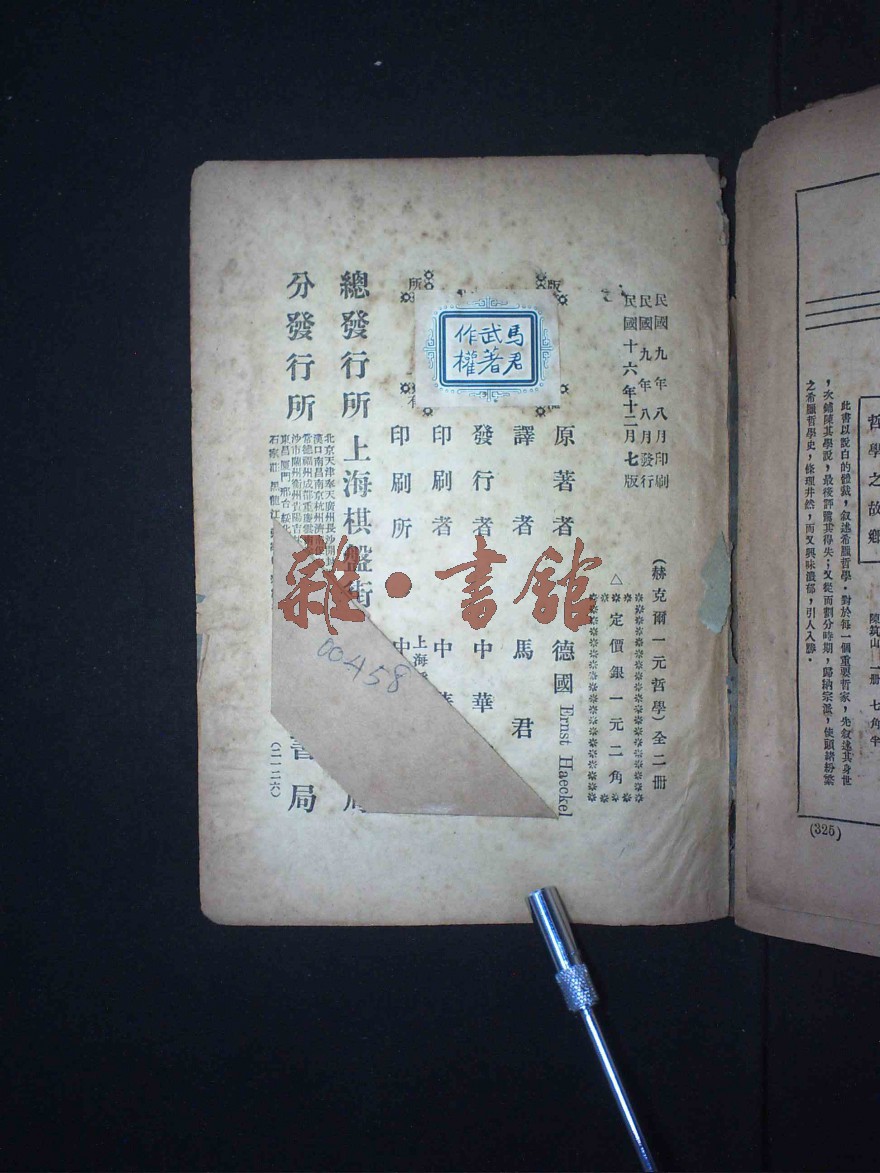 民國九年八月印刷
民國九年八月發行
民國十六年十二月七版
(赫克爾一元哲學)全二冊
△定價銀一元二角
原著者 德國 Ernst Haeckel
譯者 馬君
發行者 中華
印刷者 中華
印刷所 上海
中
版
所
有
馬君
武著
作
權
總發行所 上海棋盤街
分發行所
書局
北京天津奉天廣州長沙開封
漢口南昌南京杭州濟南
常德福州成都重慶雲南
沙市蘭州衡州貴陽
東昌廈門邢台綏
石家莊 黑龍江
(一一二六)
00458
雜·書館
哲學之故鄉
陳筑山 一冊 七角半
此書以說白的體裁,敘述希臘哲學。對於每一個重要哲家,先敘述其身世
,次鋪陳其學說,最後評騭其得失;又從而劃分時期,歸納宗派,使頭緒紛繁
之希臘哲學史,條理井然,而又興味濃郁,引人入勝。
(325)